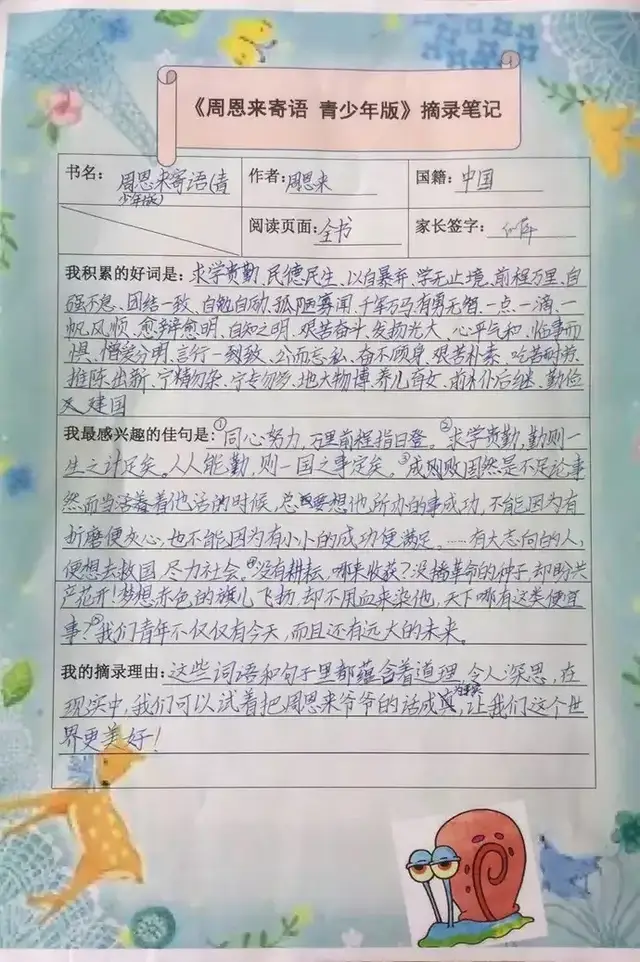 《周恩来寄语 青少年版》摘录笔记
书名：周恩来寄语(青少年版) 作者:周恩来 国籍：中国
阅读页面:全书 家长签字：
我积累的好词是：求学贵勤、民德民生、以自暴弃、学无止境、前程万里、自
强不息、团结一致、自勉自励、孤陋寡闻、千军万马、有勇无智、一点一滴、一
帆风顺、愈辩愈明、自知之明、艰苦奋斗、发扬光大、心平气和、临事而
惧、憎爱分明、言行一致、公而忘私、奋不顾身、艰苦朴素、吃苦耐劳、
推陈出新、宁精勿杂、宁专勿多、地大物博、养儿育女、前仆后继、勤俭
建国
我最感兴趣的佳句是：①同心努力，万里前程指日登。②求学贵勤，勤则一
生之计足矣。人人能勤，则一国之事定矣。③成败固然是不足论事
然而当活着着他活的时候，总要想他所办的事成功，不能因为有
折磨便灰心，也不能因为有小小的成功便满足。……有大志向的人，
便想去救国，尽力社会。④没有耕耘，哪来收获？没播革命的种子，却盼共
产花开！梦想赤色的旗儿飞扬，却不用血来染他，天下哪有这类便宜
事？⑤我们青年不仅仅有今天，而且还有远大的未来。
我的摘录理由：这些词语和句子里都蕴含着道理，令人深思，在
现实中，我们可以试着把周恩来爷爷的话成为现实，让我们这个世
界更美好！